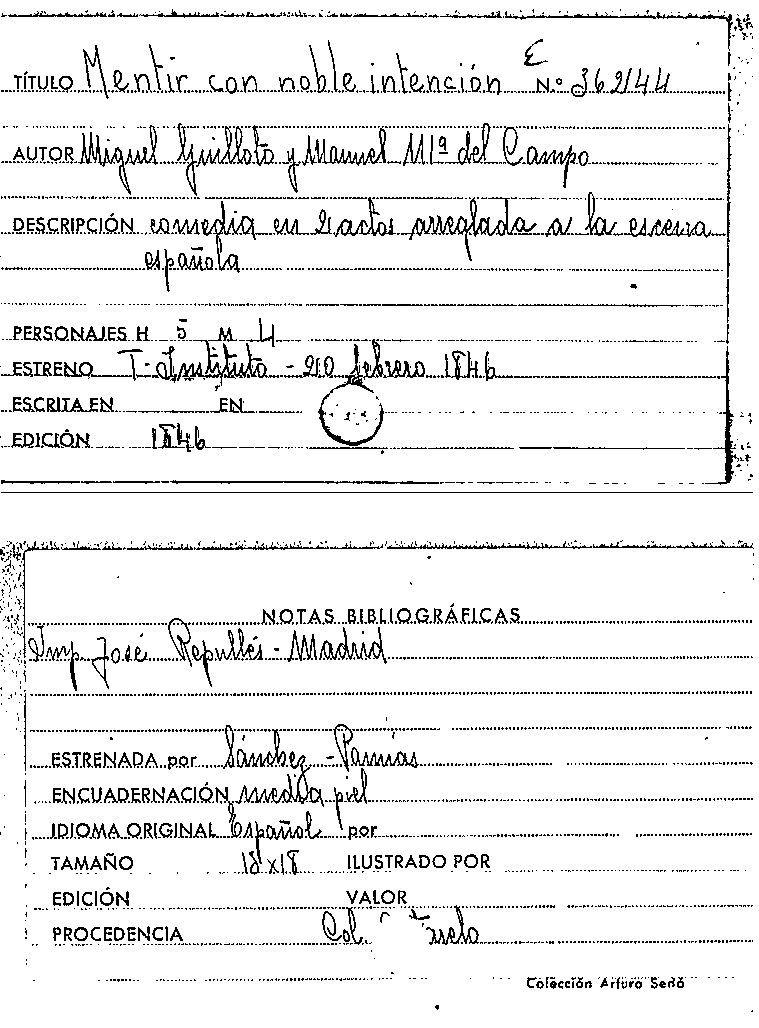 E
TÍTULO Mentir con noble intención N.º 362/44
AUTOR Miguel Guilloto y Manuel Mª del Campo
DESCRIPCIÓN comedia en 2 actos arreglada a la escena
española
PERSONAJES H 5 M 4
ESTRENO T. Instituto - 20 febrero 1846
ESCRITA EN EN
EDICIÓN 1846
NOTAS BIBLIOGRÁFICAS
Imp José Repullés - Madrid
ESTRENADA por Sánchez - Pamias
ENCUADERNACIÓN media piel
IDIOMA ORIGINAL Español por
TAMAÑO 18 x 18 ILUSTRADO POR
EDICIÓN VALOR
PROCEDENCIA Col.
Colección Arturo Sedó